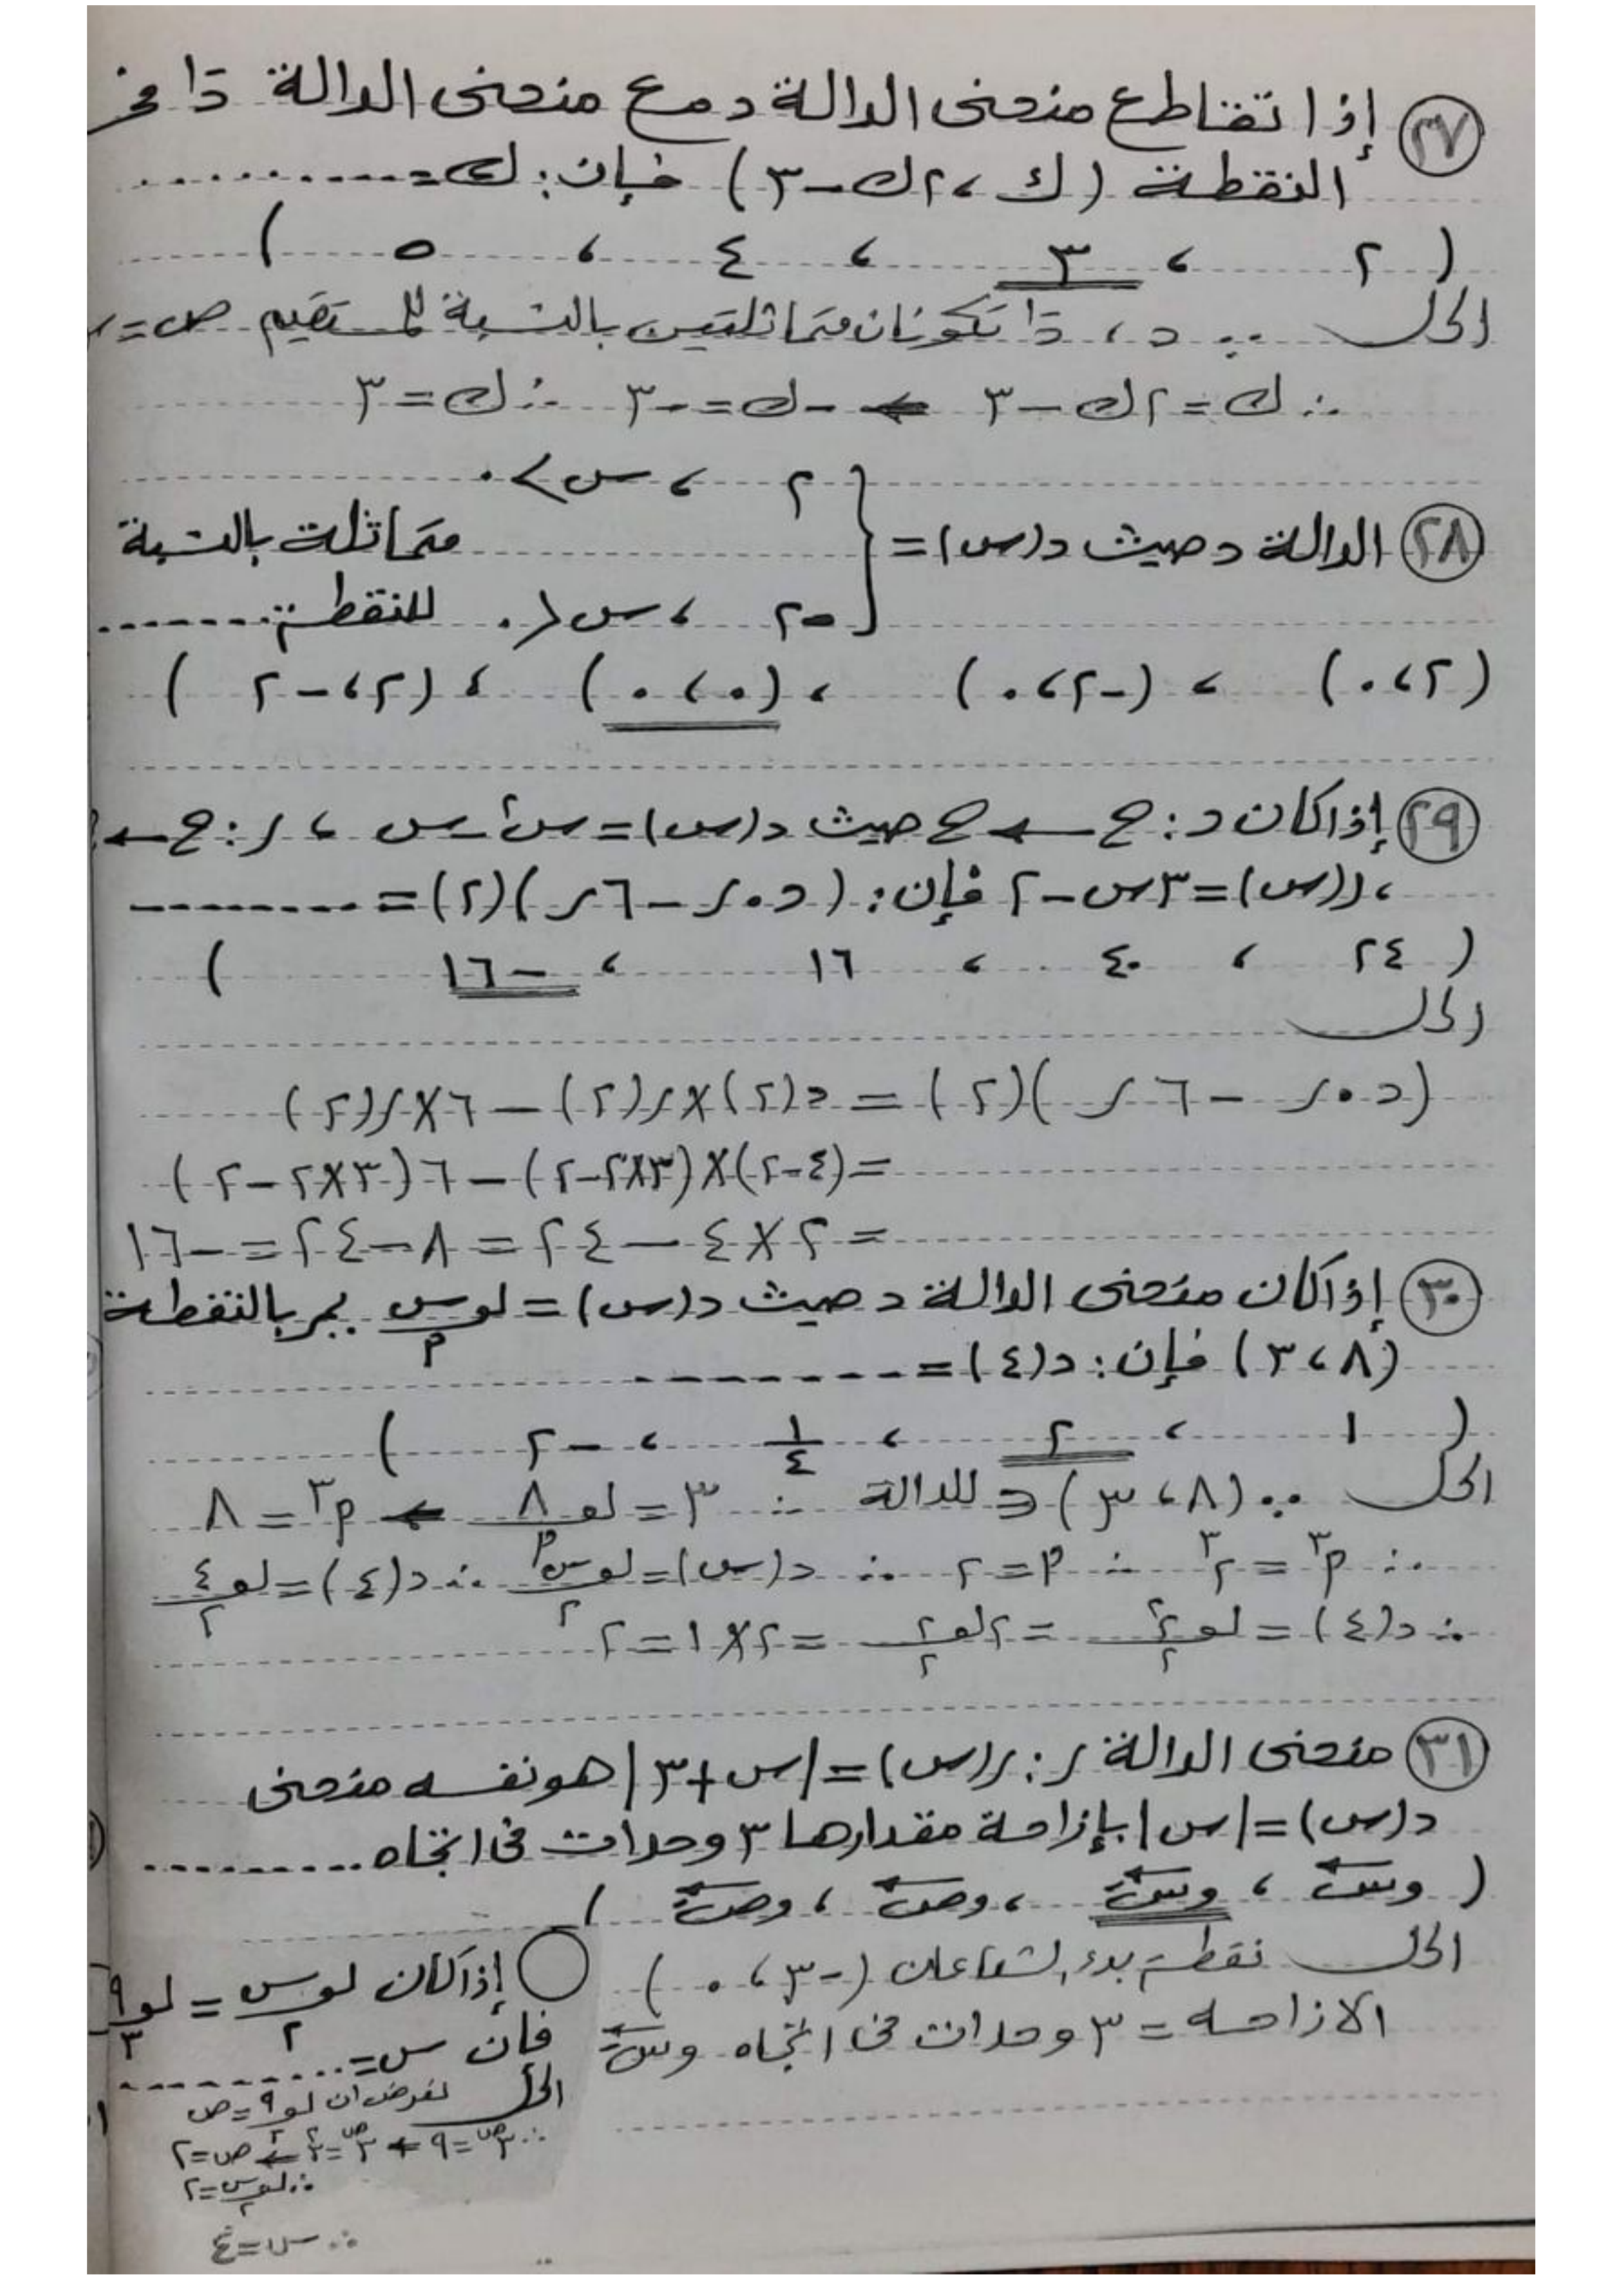 (٢٧) إذا تقاطع منحنى الدالة د مع منحنى الدالة د⁻¹ فى
النقطة (ك ، ٢ك - ٣) فإن: ك = ..........
(٢ ، ٣ ، ٤ ، ٥)
الحل ∵ د ، د⁻¹ تكونان متماثلتين بالنسبة للمستقيم ص = س
∴ ك = ٢ك - ٣ ← -ك = -٣ ∴ ك = ٣
٢ ، س > ٠
(٢٨) الدالة د حيث د(س) = { متماثلة بالنسبة
-٢ ، س < ٠ للنقطة .......
(٢ ، ٠) ، (-٢ ، ٠) ، (٠ ، ٠) ، (٢ ، -٢)
(٢٩) إذا كان د : ح ← ح حيث د(س) = س² - س ، ر : ح ←
، ر(س) = ٣س - ٢ فإن: (د . ر - ٦ر)(٢) = ........
(٢٤ ، ٤٠ ، ١٦ ، -١٦)
الحل
(د . ر - ٦ر)(٢) = د(٢) × ر(٢) - ٦ × ر(٢)
= (٤ - ٢) × (٣×٢ - ٢) - ٦(٣×٢ - ٢)
= ٢ × ٤ - ٢٤ = ٨ - ٢٤ = -١٦
(٣٠) إذا كان منحنى الدالة د حيث د(س) = لو_م س يمر بالنقطة
(٨ ، ٣) فإن: د(٤) = ........
(١ ، ٢ ، ١/٤ ، -٢)
الحل ∵ (٨ ، ٣) ∈ للدالة ∴ ٣ = لو_م ٨ ← م³ = ٨
∴ م³ = ٢³ ∴ م = ٢ ∴ د(س) = لو_٢ س ∴ د(٤) = لو_٢ ٤
∴ د(٤) = لو_٢ ٢² = ٢لو_٢ ٢ = ٢ × ١ = ٢
(٣١) منحنى الدالة ر : ر(س) = |س + ٣| هو نفسه منحنى
د(س) = |س| بإزاحة مقدارها ٣ وحدات فى اتجاه ..........
(وس ، وسَ ، وص ، وصَ)
الحل نقطة بدء الشعاعان (-٣ ، ٠)
الازاحه = ٣ وحدات فى اتجاه وسَ
إذا كان لو_٢ س = لو_٣ ٩
فإن س = ..........
الحل نفرض ان لو_٣ ٩ = ص
∴ ٣^ص = ٩ ← ٣^ص = ٣² ← ص = ٢
∴ لو_٢ س = ٢
∴ س = ٤